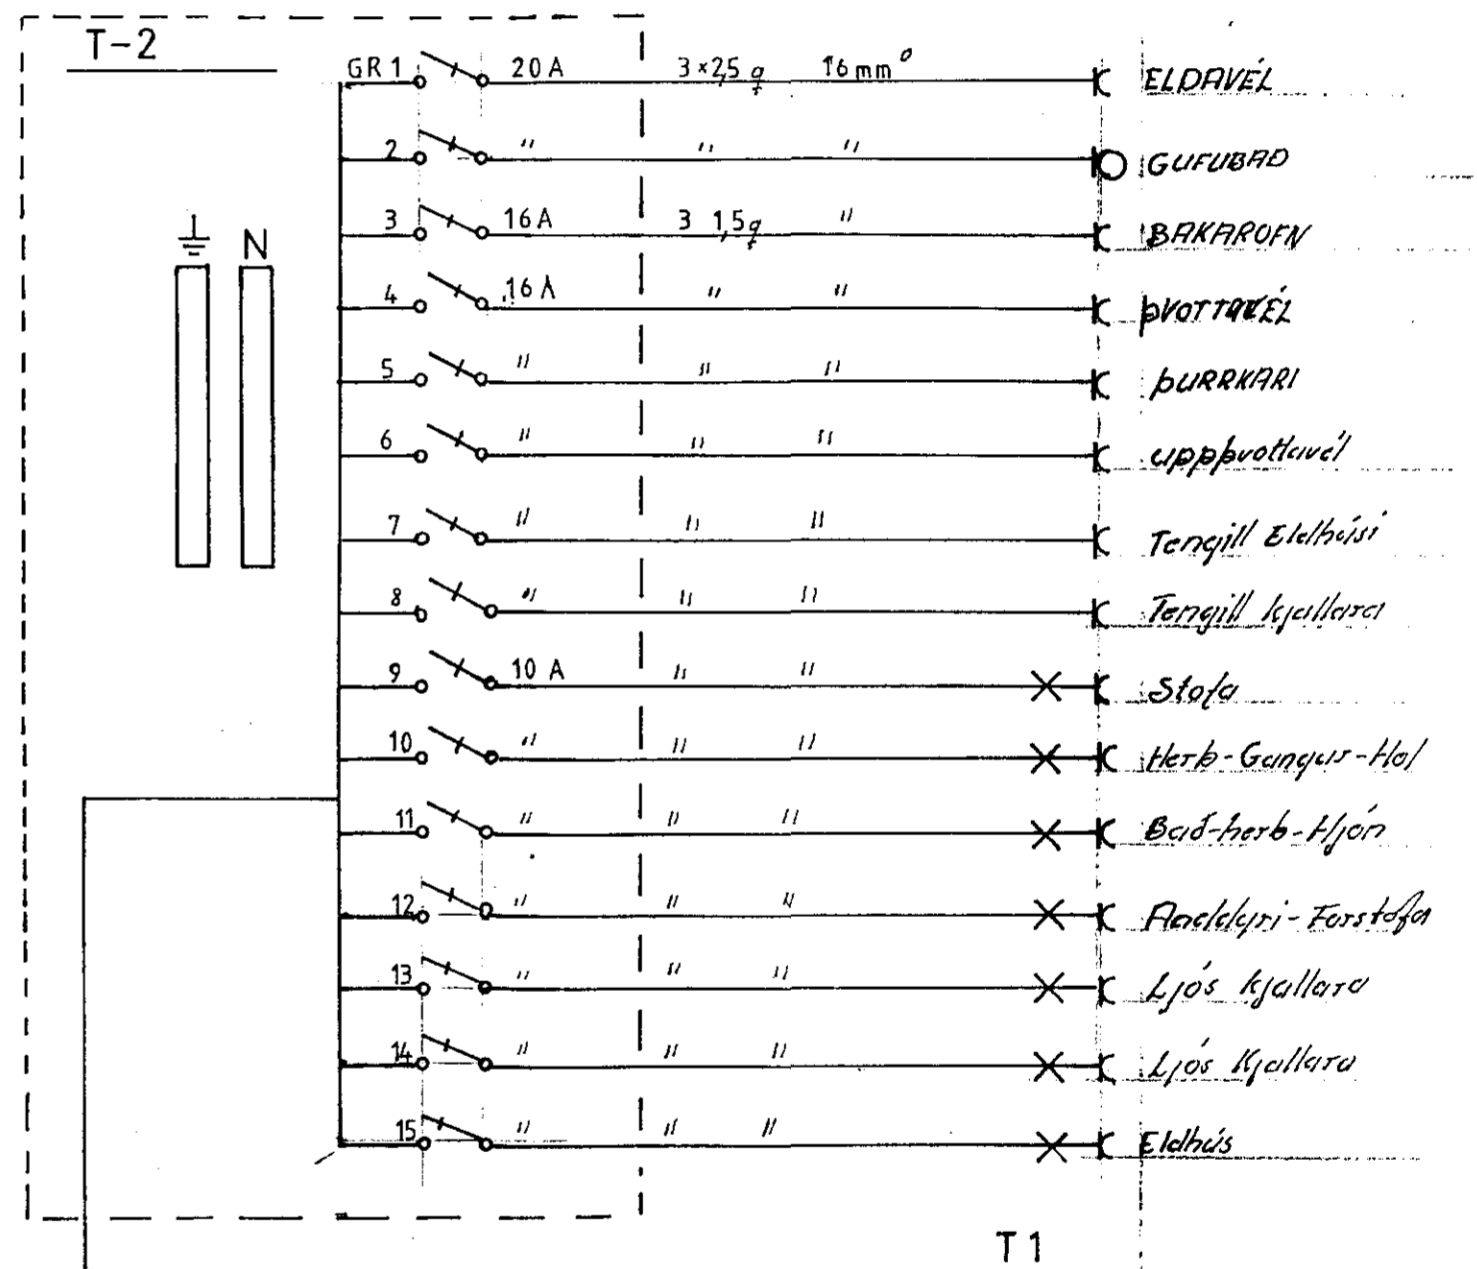 T-2
GR 1 20 A 3×2,5 q 16 mm° ELDAVÉL
2 " " " GUFUBAÐ
3 16 A 3 1,5 q " BAKAROFN
4 16 A " " ÞVOTTAVÉL
5 " " " ÞURRKARI
6 " " " uppþvottavél
7 " " " Tengill Eldhúsi
8 " " " Tengill kjallara
9 10 A " " Stofa
10 " " " Herb-Gangur-Hol
11 " " " Bað-herb-Hjón
12 " " " Anddyri-Forstofa
13 " " " Ljós kjallara
14 " " " Ljós Kjallara
15 " " " Eldhús
N
T 1